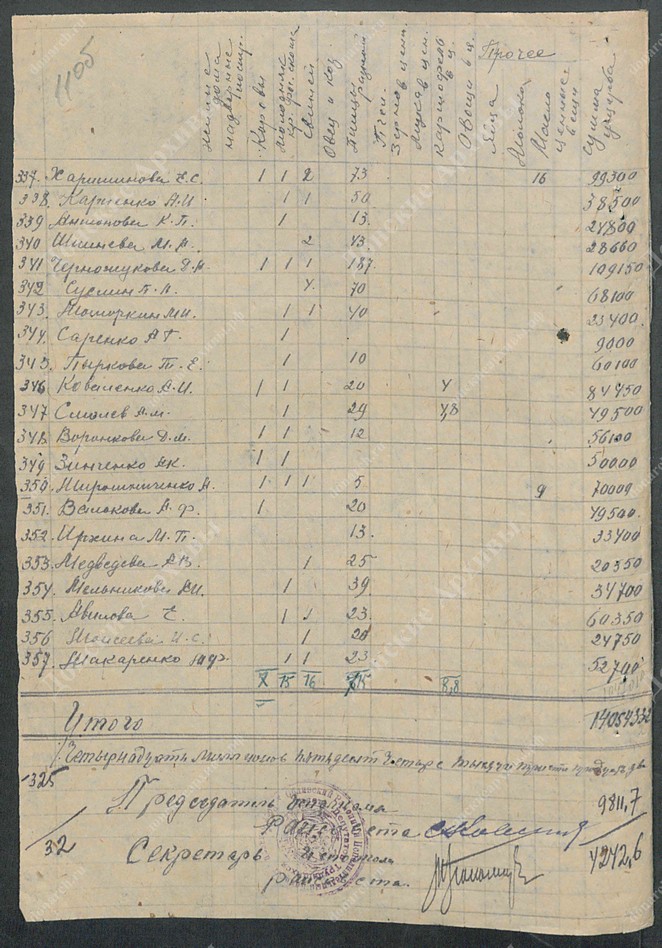 1105
Жилые дома надворные постр.
Коровы
Молодняк кр. рог. скота
Свиней
Овец и коз
Птицы разной
Пчел
Зернов. ц.
Мука в ц.
Картофель в ц.
Овощи в ц.
Прочее
Яйца
Молоко
Масло
ценные вещи
Сумма ущерба
337. Харитинова Е.С. 1 1 2 73 16 99300
338. Карпенко А.И 1 1 50 38500
339 Антонова К.П. 1 13. 24800
340 М.А. 2 43. 28660
341 Черножукова Д.Н 1 1 1 187. 109150
342 Суслин П.П. 4. 70 68100
343. М.И. 1 1 40 23400
344. Саренко А Г. 1 9000
345. Пыркова Т.Е. 1 10 60100
346 Коваленко А.И. 1 1 20 4 84450
347 Смолев А.М. 1 29 4,8 49500
348 Воронкова Д.М. 1 1 12 56100
349 Зинченко 1 1 50000
350. Мирошниченко А. 1 1 1 5 9 70000
351. А.Ф. 1 20 49500.
352. М.П. 13. 33400
353. Медведева А.В. 1 25 20350
354. Мельникова 1 39 34700
355. Авилова Е. 1 1 23 60350
356 Моисеева И.С. 1 20 24750
357. Макаренко 1 1 23 52700
8 15 16 715 8,8
Итого 14054332
Четырнадцать миллионов пятьдесят четыре тысячи триста тридцать два
325
Председатель Исполкома 9811,7
Райсовета
32 Секретарь Исполкома 4242,6
райсовета.